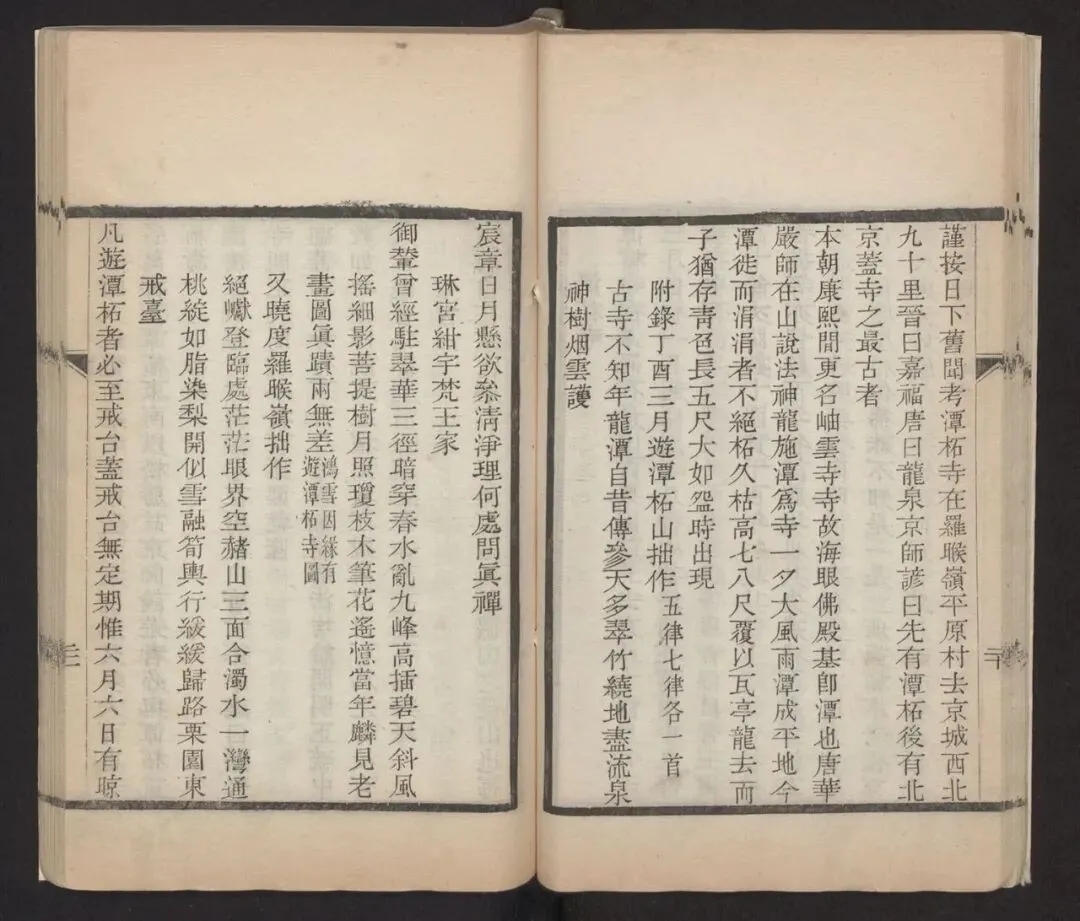 謹按日下舊聞考潭柘寺在羅睺嶺平原村去京城西北
九十里晉曰嘉福唐曰龍泉京師諺曰先有潭柘後有北
京蓋寺之最古者
本朝康熙間更名岫雲寺寺故海眼佛殿基卽潭也唐華
嚴師在山說法神龍施潭爲寺一夕大風雨潭成平地今
潭徙而涓涓者不絕柘久枯高七八尺覆以瓦亭龍去而
子猶存靑色長五尺大如盌時出現
附錄丁酉三月遊潭柘山拙作五律七律各一首
古寺不知年龍潭自昔傳參天多翠竹繞地盡流泉
神樹烟雲護
二十
宸章日月懸欲叅淸淨理何處問眞禪
琳宮紺宇梵王家
御輦曾經駐翠華三徑暗穿春水亂九峰高插碧天斜風
搖細影菩提樹月照瓊枝木筆花遙憶當年麟見老
畫圖眞蹟兩無差鴻雪因緣有
遊潭柘寺圖
又曉度羅睺嶺拙作
絕巘登臨處茫茫眼界空赭山三面合濁水一灣通
桃綻如脂染梨開似雪融筍輿行緩緩歸路栗園東
戒臺
凡遊潭柘者必至戒台蓋戒台無定期惟六月六日有晾